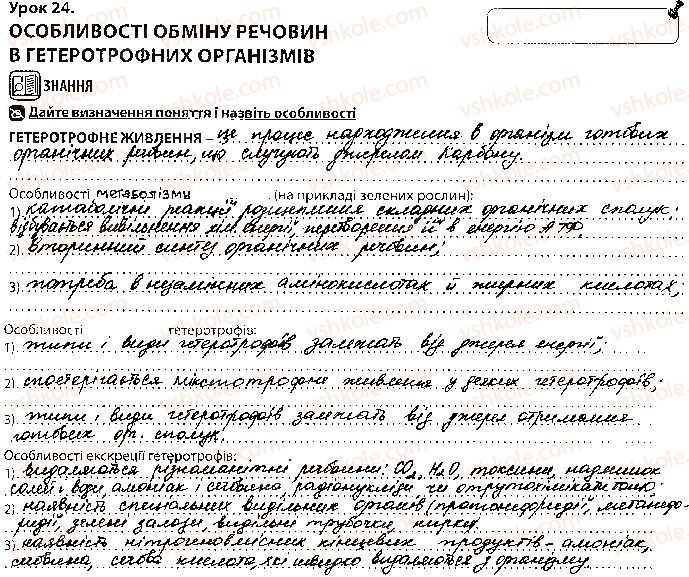 Урок 24.
ОСОБЛИВОСТІ ОБМІНУ РЕЧОВИН
В ГЕТЕРОТРОФНИХ ОРГАНІЗМІВ
ЗНАННЯ
Дайте визначення поняття і назвіть особливості
ГЕТЕРОТРОФНЕ ЖИВЛЕННЯ – це процес надходження в організм готових
органічних речовин, що служать джерелом Карбону.
Особливості метаболізму (на прикладі зелених рослин):
1) катаболічні реакції розщеплення складних органічних сполук:
відбувається вивільнення хім. енергії, перетворення її в енергію АТФ;
2) вторинний синтез органічних речовин;
3) потреба в незамінних амінокислотах й жирних кислотах;
Особливості гетеротрофів:
1) типи і види гетеротрофів залежать від джерел енергії;
2) спостерігається міксотрофне живлення у деяких гетеротрофів;
3) типи і види гетеротрофів залежать від джерел отримання
готових ор. сполук.
Особливості екскреції гетеротрофів:
1) видаляються різноманітні речовини: CO₂, H₂O, токсини, надлишок
солей і води, амоніак і сечовина, радіонукліди чи отрутохімікати тощо;
2) наявність спеціальних видільних органів (протонефридії, метанеф-
ридії, зелені залози, видільні трубочки, нирки).
3) наявність нітрогеновмісних кінцевих продуктів – амоніак,
сечовина, сечова кислота, які швидко видаляються з організму.